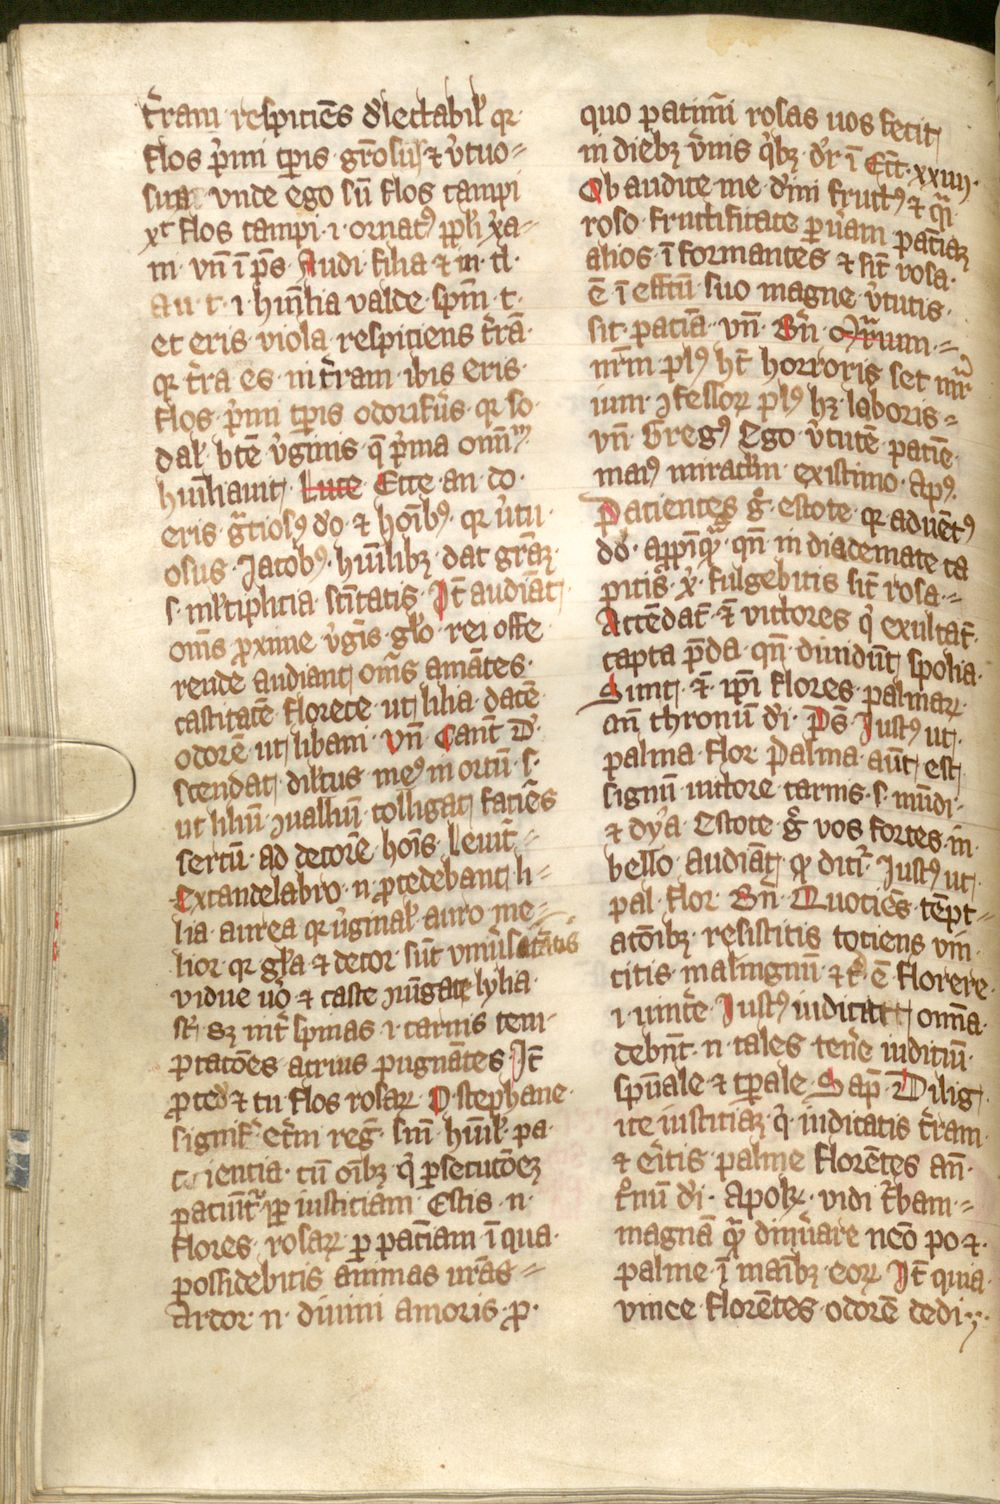 t̄ram respiciēs dlectabil' qr
flos p̄mi tꝑis gr̄osus ⁊ v̄tuo=
sus vnde ego sū flos campi
xt flos campi · i · ornatꝰ ppl'i xᷓa-
ni · vn̄ ī ps̄ Audi filia ⁊ in cl ·
au · t · i hu̅ilia valde · spm̄ · t ·
et eris viola respiciens t̄rā
qr t̄ra es in t̄ram ibis eris
flos p̄mi tꝑis odorifūs · qr so
dal' btē v̄ginis q̄ p̄ma om̄ꝰ
hu̅iliauit · Luce Ecce an · do ·
eris gᷓtiosꝰ do · ⁊ hoi̅bꝰ · qr v̄tu
osus · Jacobꝰ · hu̅ilibꝫ dat gr̄aꝫ
s · ml'tiplicia sc̄itatis It̄ audiāt
om̅s ꝓxime v̄gis gl'o rei offe
rende audiant om̅s amātes
castitatē florete ut lilia date
odorē ut libani vn̄ Cant̄ D'
scendat dil'cus meꝰ in ortū · s ·
ut liliū ꝯualliū colligat faciēs
sertū · ad decorē hoīs · Leuit̄ =
Ex candelabro · n · ꝓcedebant li=
lia · aurea qr v̄ginal' auro me=
lior · qr gl'a ⁊ decor sūt vniūsitatis
vidue uo ⁊ caste ꝯiugate lylia
st̄ · sꝫ int̄ spinas · i · carnis tem-
ptatoēs acrius pugnātes It̄
ꝓced ⁊ tu flos rosaꝝ O stephane
signif' et̄m reg̅ · sui hu̅il' pa
cientia · cū oi̅bꝫ q̄ ꝑsecutōeꝫ
patiunt ꝓpt̄ iusticiam Estis · n ·
flores · rosaꝝ ꝑ paciam ī qua ·
possidebitis animas ur̄as =
Ardor · n · diuini amoris · ꝓ ·
quo patimi̅ rosas uos fecit
in diebꝫ v̄nis q̄bꝫ dr̄ ī Ecc̄ · xxiiij ·
Ob audite me dini fructꝰ ⁊ q̄i
roso · fructificate ꝑ ur̄am paciaꝫ
alios īformantes ⁊ sic̄ rosa ·
ē ī effectū suo magne v̄tutis ·
sit · pacia · vn̄ · Bn̄ Mr̄ium =
nr̄m plꝰ ht̄ horroris set mr̄
ium · ꝯfessoꝝ plꝰ hꝫ · laboris =
vn̄ Gregꝰ Ego v̄tutē pacie
maiꝰ miraclm̄ existimo · Apꝰ
Pacientes gͦ estote · qr aduētꝰ
do · app̄iqᷓ · qn̄ in diademate ca
pitis xᷓ · fulgebitis sic̄ rosa =
Accēdat̄ · ⁊ victores q̄ exultāt
capta p̄da · qn̄ diuidūt spolia ·
Sunt ⁊ ip̄i flores palmaꝝ
an̄ thronū di · Ps̄ · Justꝰ ut
palma · flor Palma aūt est
signū victore carnis · s · mūdi ·
⁊ dyᷓa Estote gͦ vos fortes in
bello · audiāt ꝙ dicit̄ · Justꝰ ut
pal · flor · Bn̄ · Quociēs tēpt=
atoībꝫ · resistitis tociens vin
citis malingnū · ⁊ h̄ · ē florere ·
i · vinc̄e · Justꝰ iudicat omīa ·
debnt̄ · n · tales ten̄e iudiciū ·
spūale ⁊ tꝑale Sap̄ Dilig
ite iusticiaꝫ q̄ iudicatis t̄ram
⁊ eritis palme florētes an̄ ·
t̄nū di · Apolꝫ · vidi t̄bam =
magnā qᷓ dinūare nēo po ⁊ ·
palme · ī mai̅bꝫ · eoꝝ It̄ quia ·
vince florētes · odorē dedi ·